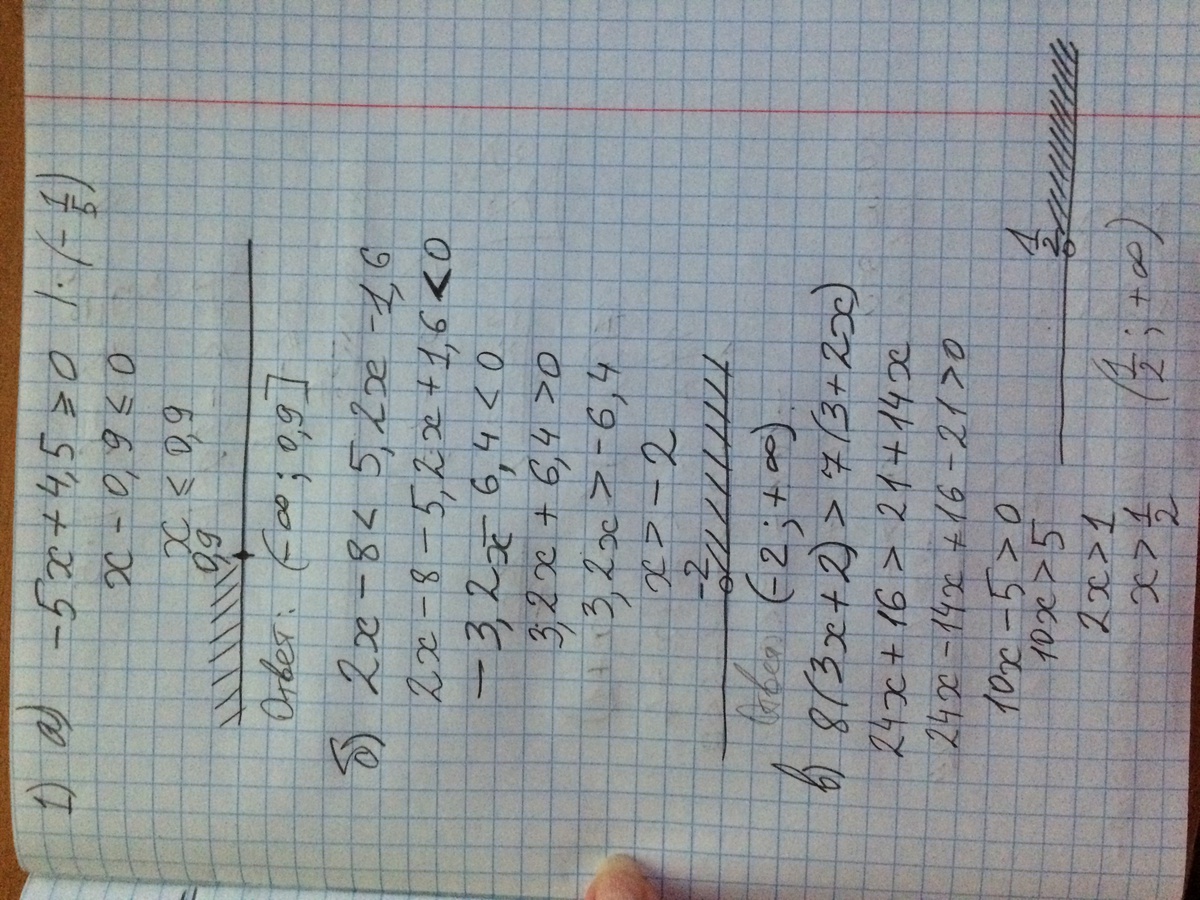 1) а) -5x + 4,5 ⩾ 0 /:(-1/5)
x - 0,9 ≤ 0
x ≤ 0,9
0,9
Ответ: (-∞; 0,9]
б) 2x - 8 < 5,2x - 1,6
2x - 8 - 5,2x + 1,6 < 0
-3,2x - 6,4 < 0
3,2x + 6,4 > 0
3,2x > -6,4
x > -2
-2
Ответ (-2; +∞)
в) 8(3x + 2) > 7(3 + 2x)
24x + 16 > 21 + 14x
24x - 14x + 16 - 21 > 0
10x - 5 > 0
10x > 5
2x > 1
x > 1/2
1/2
(1/2; +∞)